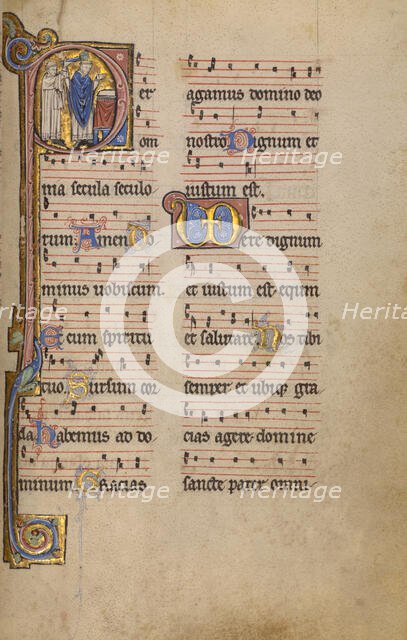 Per
om
nia secula seculo
rum Amen Do
minus uobiscum.
Et cum spiritu
tuo Sursum cor
da habemus ad do
minum Gracias
agamus domino deo
nostro Dignum et
iustum est.
Vere dignum
et iustum est equm
et salutare Nos tibi
semper et ubiq gra
cias agere domine
sancte pater omni
Heritage Images
Heritage Images
Heritage Images
Heritage Images